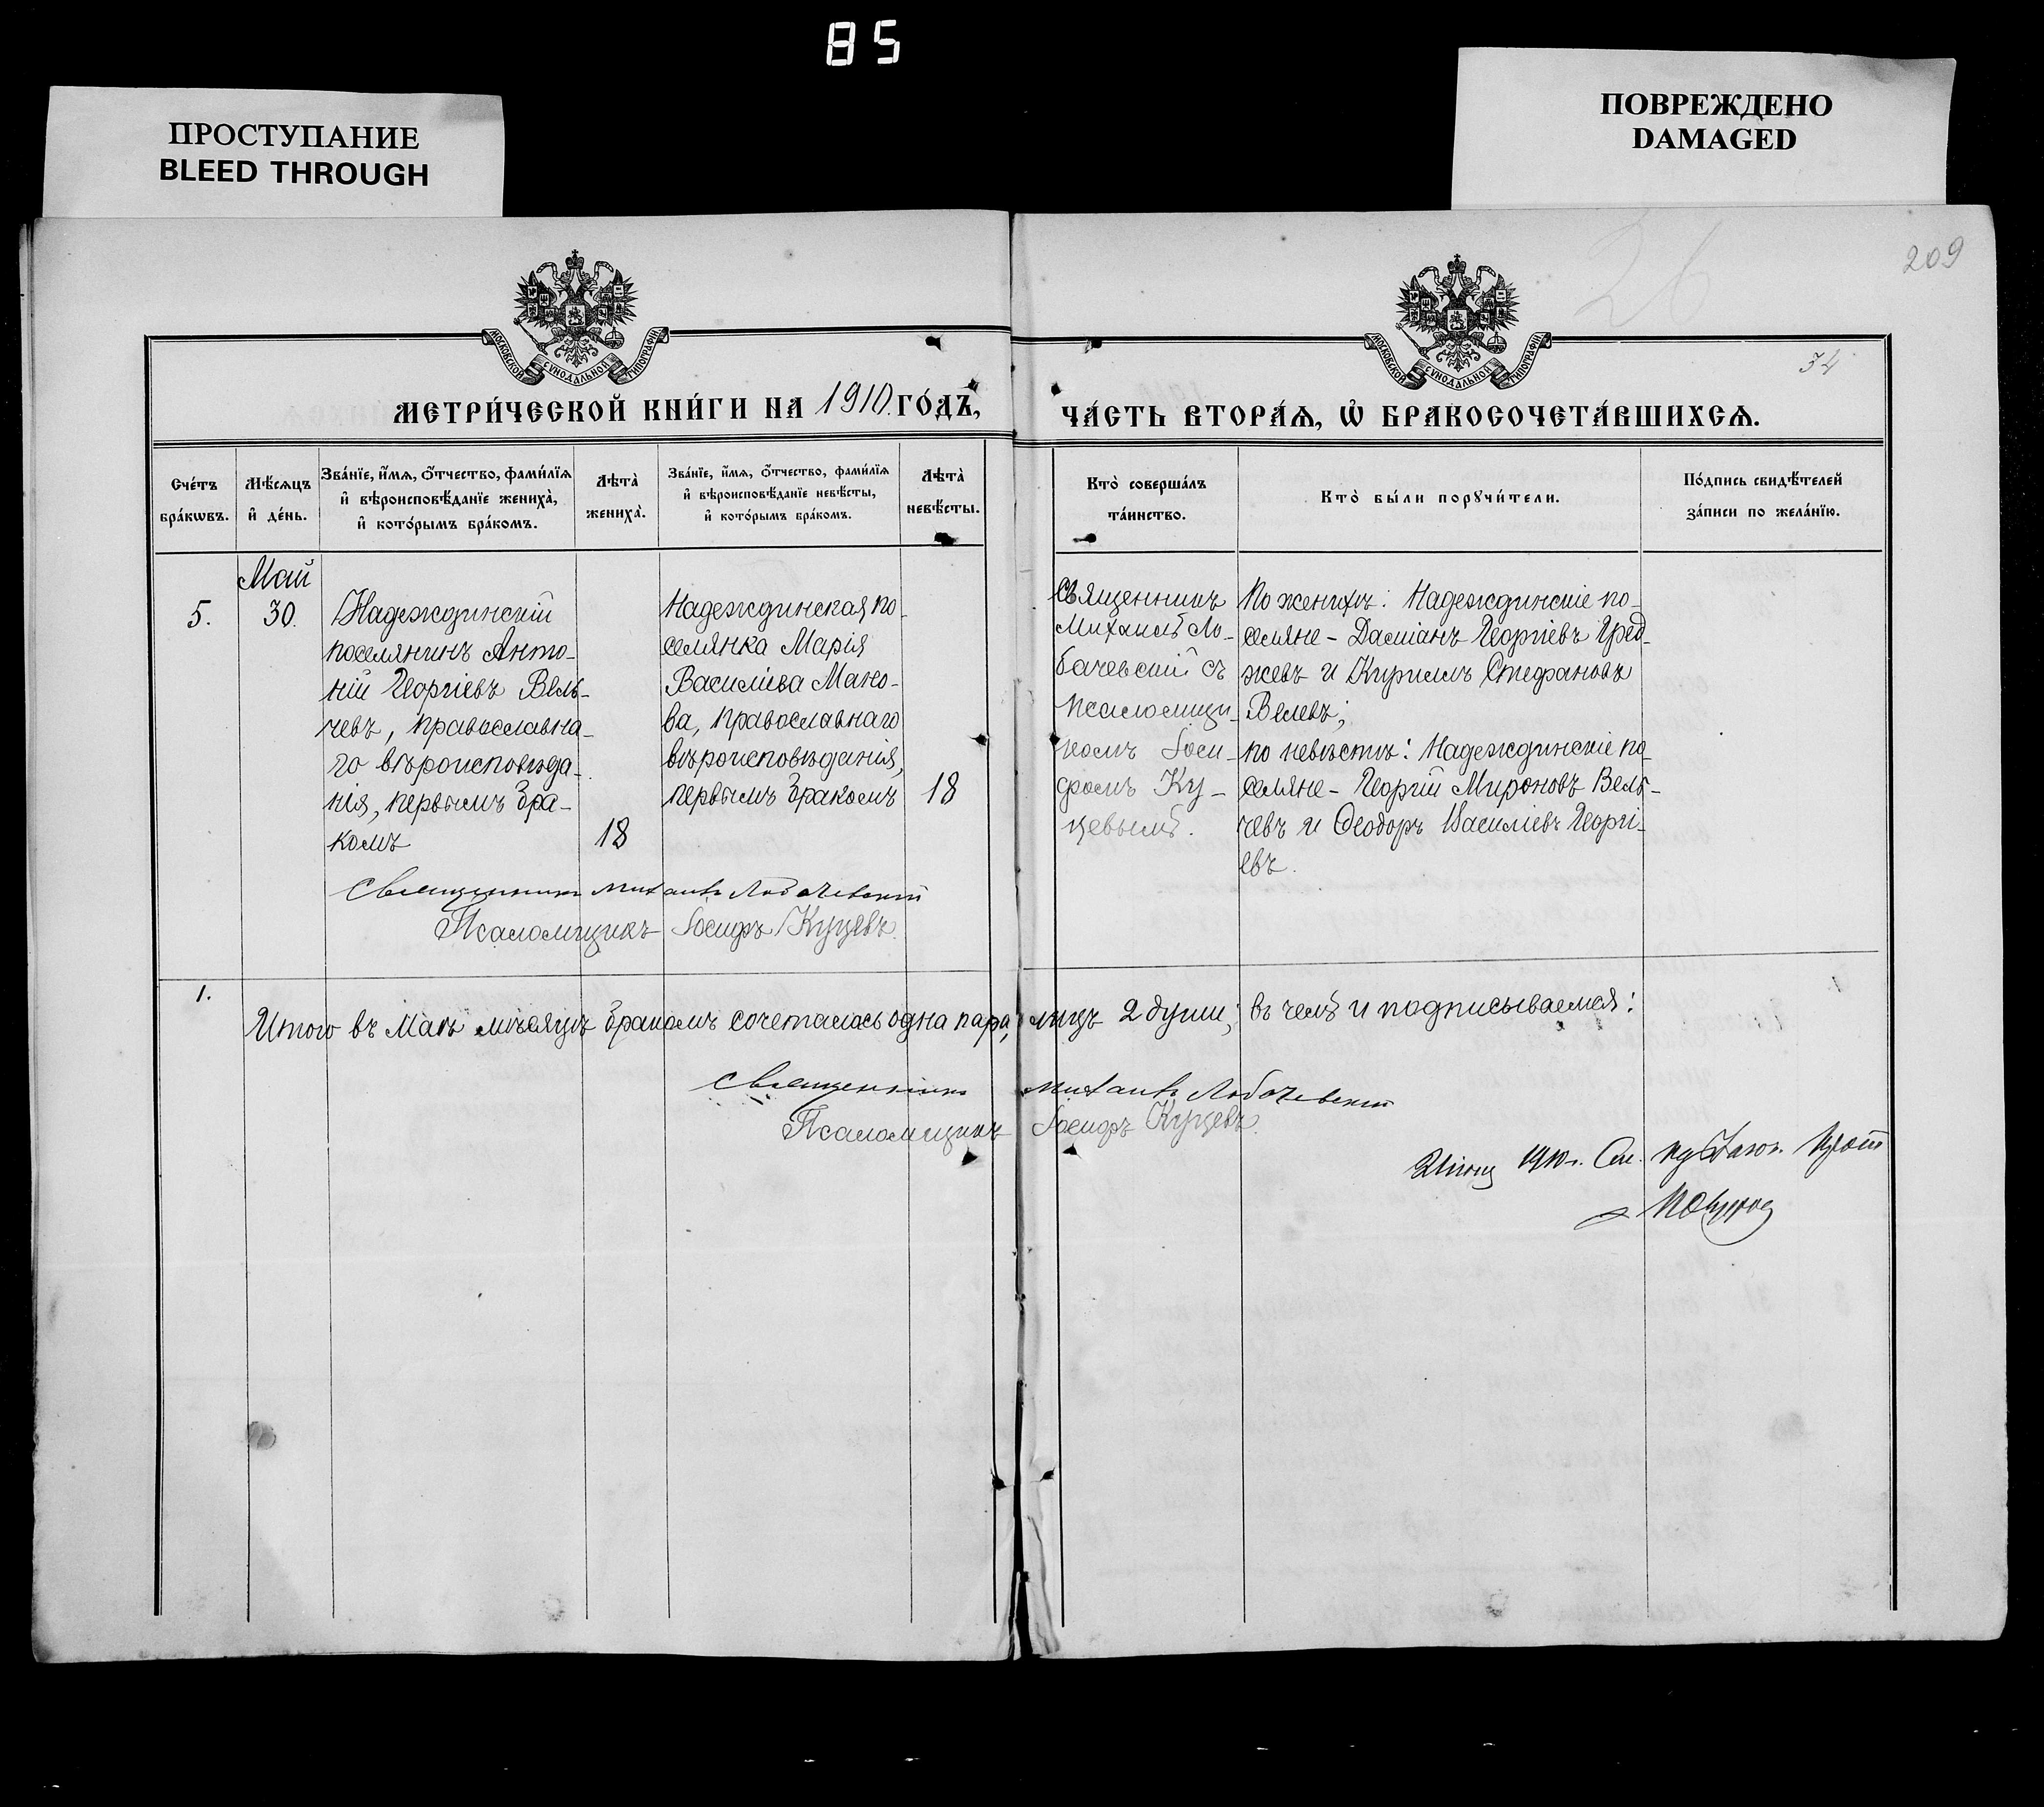 85
ПРОСТУПАНИЕ
BLEED THROUGH
ПОВРЕЖДЕНО
DAMAGED
209
26
34
МОСКОВСКОЙ СѴНОДАЛЬНОЙ ТИПОГРАФІИ
МОСКОВСКОЙ СѴНОДАЛЬНОЙ ТИПОГРАФІИ
МЕТРИ́ЧЕСКОЙ КНИ́ГИ НА 1910 ГО́ДЪ,
ЧА́СТЬ ВТОРА́Ѧ, Ѽ БРАКОСОЧЕТА́ВШИХСѦ.
Сче́тъ
бра́кѡвъ.
Мѣ́сяцъ
и҆ де́нь.
Зва́нїе, и҆́мѧ, ѻ҆́тчество, фами́лїѧ
и҆ вѣроисповѣ́данїе жениха̀,
и҆ кото́рымъ бра́комъ.
Лѣта̀
жениха̀.
Зва́нїе, и҆́мѧ, ѻ҆́тчество, фами́лїѧ
и҆ вѣроисповѣ́данїе невѣ́сты,
и҆ кото́рымъ бра́комъ.
Лѣта̀
невѣ́сты.
Кто̀ соверша́лъ
та́инство.
Кто̀ бы́ли порꙋчи́тели.
По́дпись свидѣ́телей
за́писи по жела́нїю.
Май
5.
30.
Надеждинскій
поселянинъ Анто-
ній Георгіевъ Вель-
чевъ, православна-
го вѣроисповѣда-
нія, первымъ бра-
комъ
18
Надеждинская по-
селянка Марія
Василіева Мано-
ва, православнаго
вѣроисповѣданія,
первымъ бракомъ
18
Священникъ
Михаилъ Ло-
бачевскій съ
псаломщи-
комъ Іоси-
фомъ Ку-
цевымъ.
По женихѣ: Надеждинскіе по-
селяне - Даміанъ Георгіевъ Гред-
жевъ и Кириллъ Стефановъ
Велевъ;
по невѣстѣ: Надеждинскіе по-
селяне - Георгій Мироновъ Вель-
чевъ и Ѳеодоръ Василіевъ Георгі-
евъ.
Священникъ Михаилъ Лобачевскій
Псаломщикъ Іосифъ Куцевъ.
1.
Итого въ Маѣ мѣсяцѣ бракомъ сочеталась одна пара, лицъ 2 души; въ чемъ и подписываемся:
Священникъ Михаилъ Лобачевскій
Псаломщикъ Іосифъ Куцевъ.
1910 г.